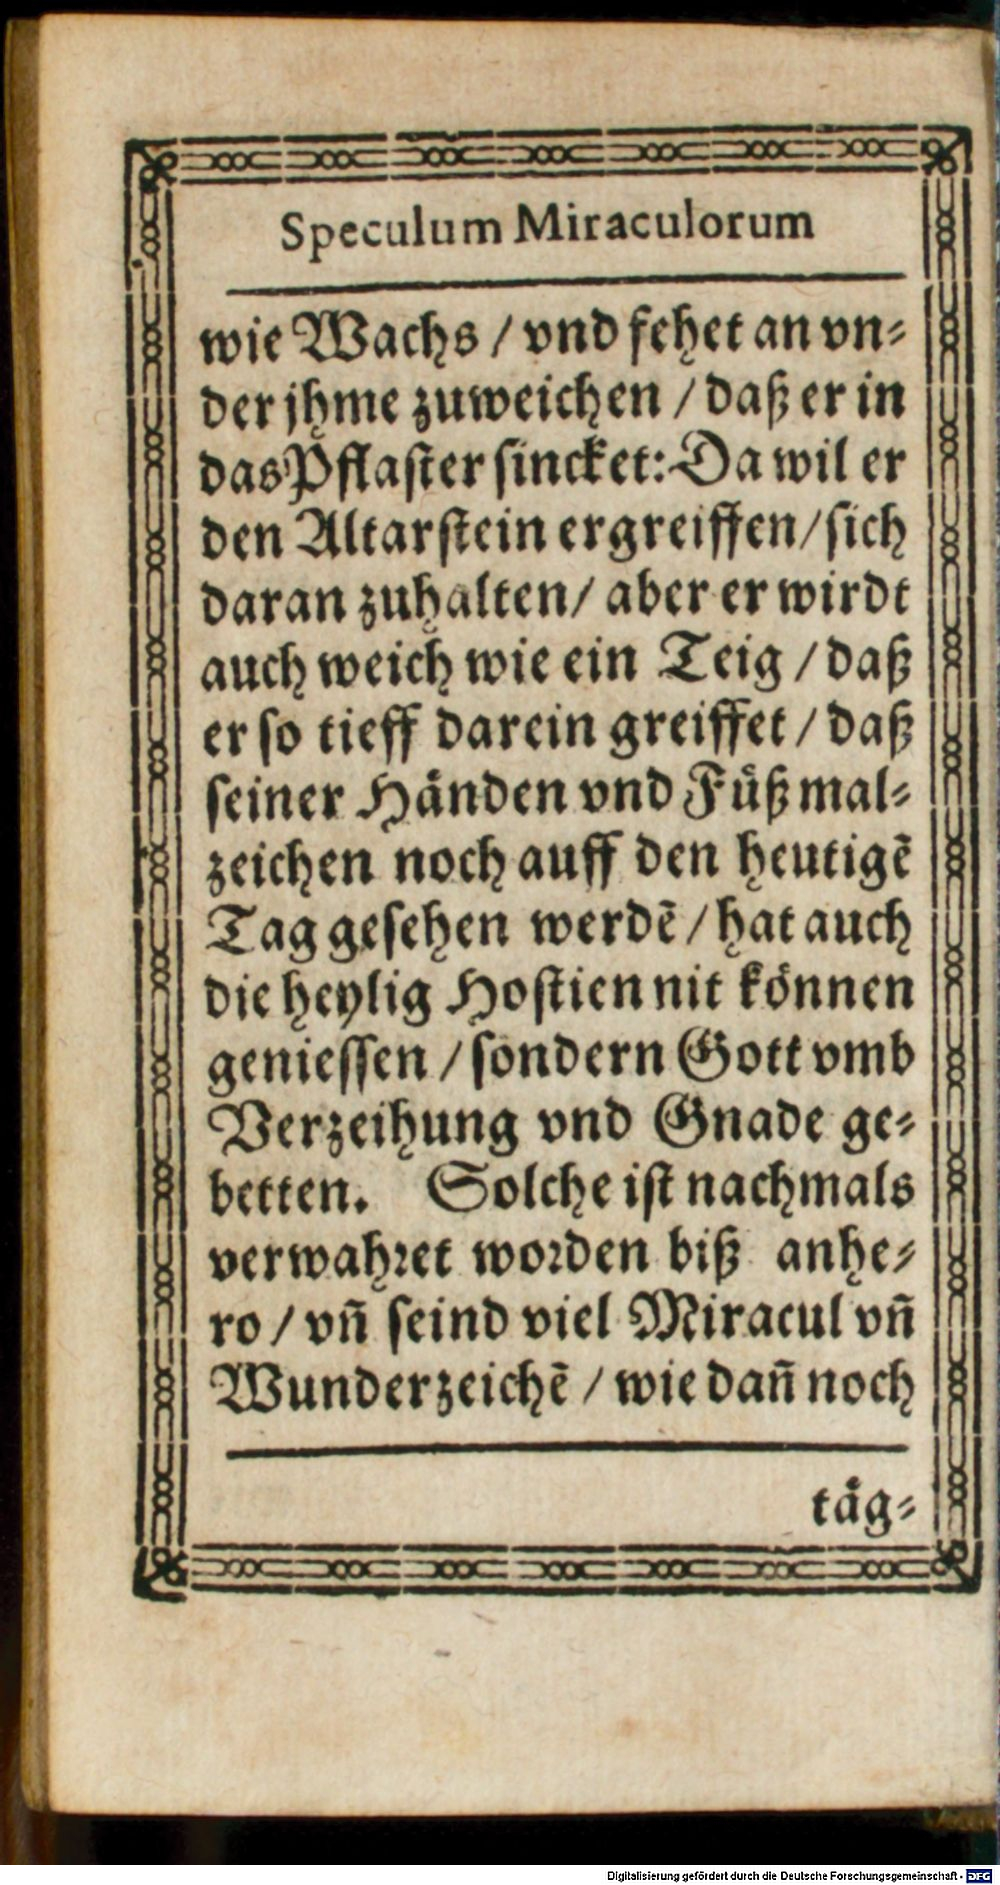 Speculum Miraculorum
wie Wachs / vnd fehet an vn-
der jhme zuweichen / daß er in
das Pflaster sincket: Da wil er
den Altarstein ergreiffen / sich
daran zuhalten / aber er wirdt
auch weich wie ein Teig / daß
er so tieff darein greiffet / daß
seiner Hånden vnd Fůß mal-
zeichen noch auff den heutigẽ
Tag gesehen werdẽ / hat auch
die heylig Hostien nit können
geniessen / sondern Gott vmb
Verzeihung vnd Gnade ge-
betten. Solche ist nachmals
verwahret worden biß anhe-
ro / vñ seind viel Miracul vñ
Wunderzeichẽ / wie dañ noch
tåg-
Digitalisierung gefördert durch die Deutsche Forschungsgemeinschaft - DFG